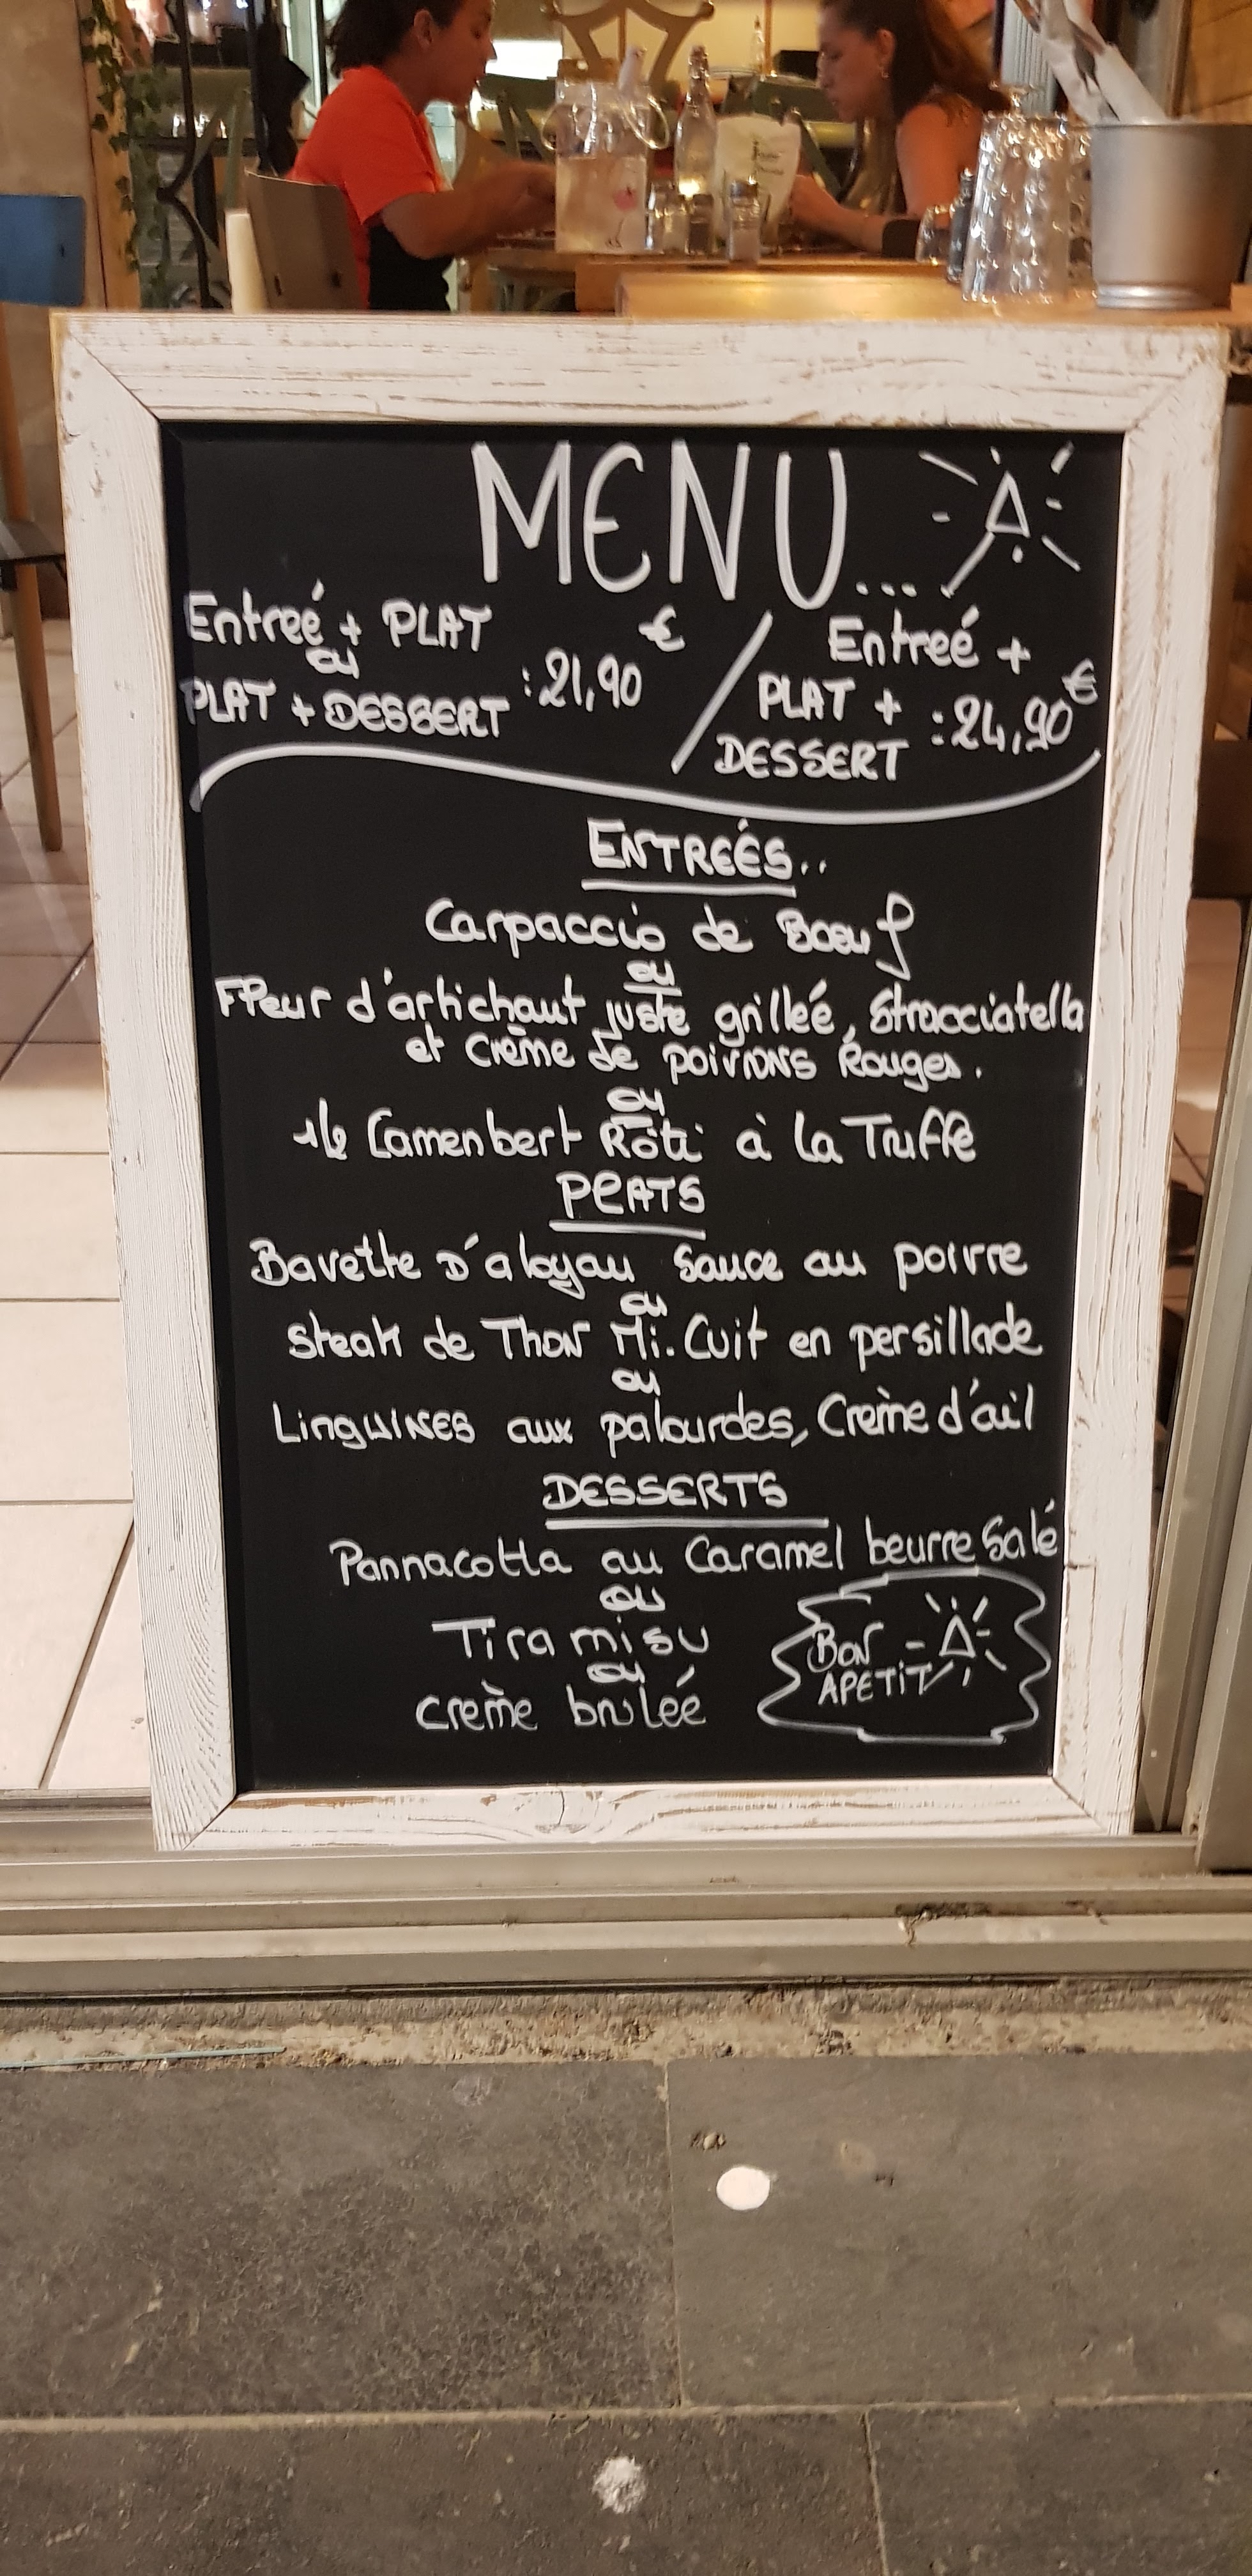 MENU...!
Entreé + PLAT
ou
PLAT + DESSERT
: 21,90 €
/
Entreé +
PLAT +
DESSERT
: 24,90 €
ENTREÉS..
Carpaccio de Boeuf
ou
Fleur d'artichaut juste grilleé, Stracciatella
et Crème de poivrons Rouges.
ou
le Camenbert Rôti à la Truffe
PLATS
Bavette D'aloyau Sauce au poivre
ou
Steak de Thon Mi.Cuit en persillade
ou
LinguiNes aux palourdes, Crème d'ail
DESSERTS
Pannacotta au Caramel beurre Salé
ou
Tiramisu
ou
Crème bruleé
BON
APETIT!